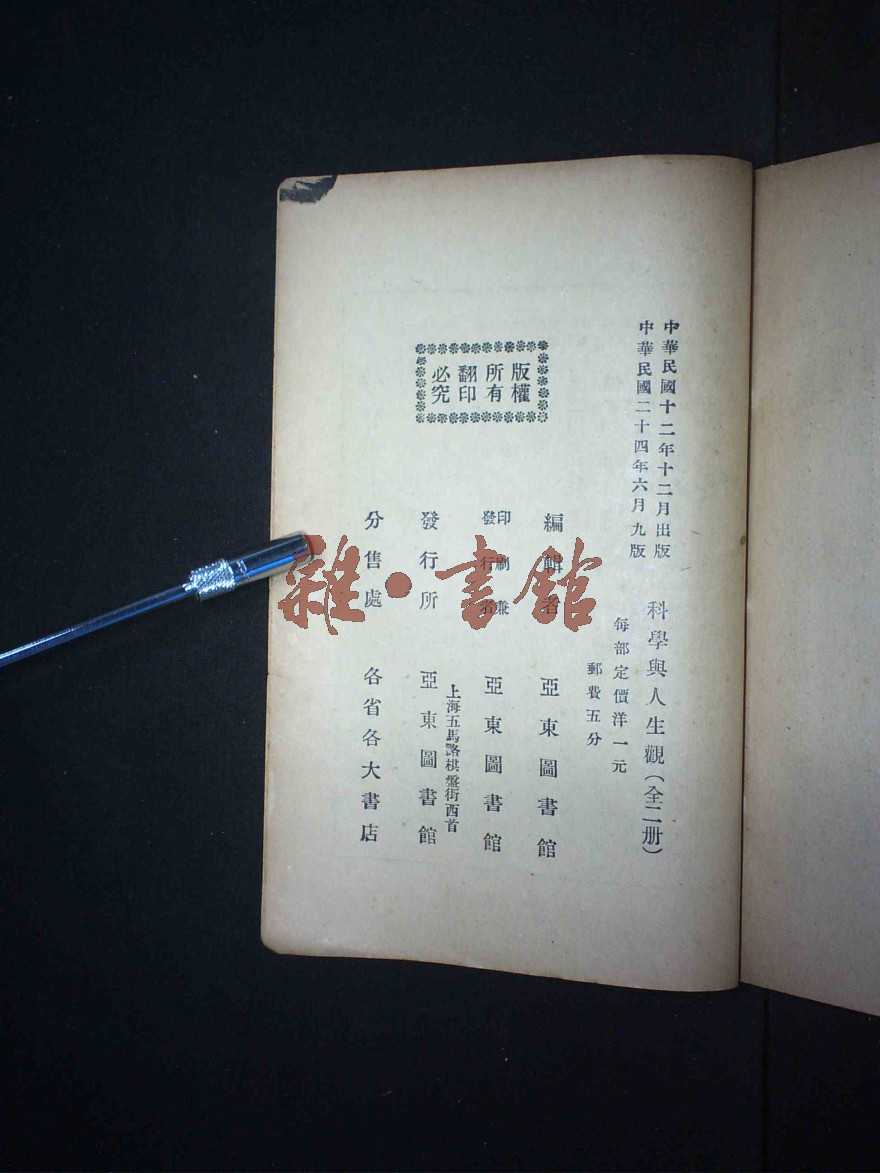 中華民國十二年十二月出版
中華民國二十四年六月九版
科學與人生觀（全二册）
每部定價洋一元
郵費五分
版權
所有
翻印
必究
編輯者 亞東圖書館
印刷兼
發行者 亞東圖書館
上海五馬路棋盤街西首
發行所 亞東圖書館
分售處 各省各大書店
雜·書館